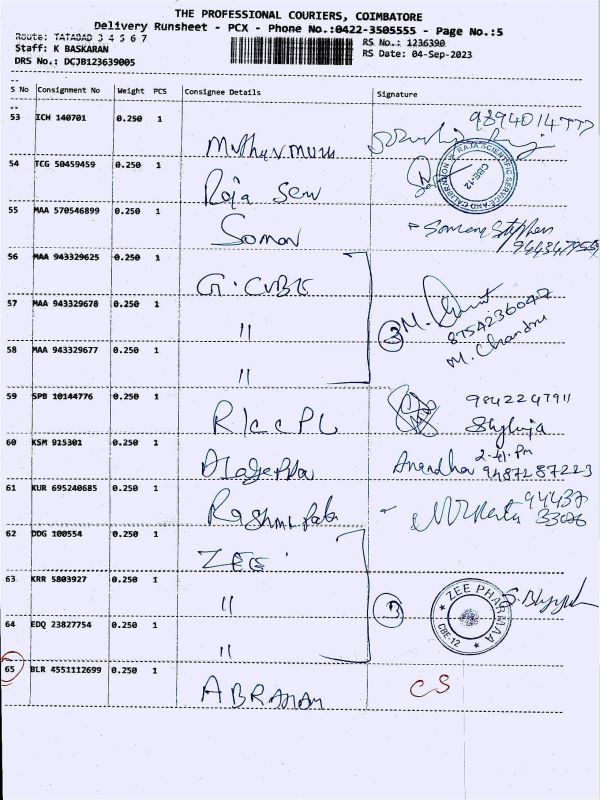 THE PROFESSIONAL COURIERS, COIMBATORE
Delivery Runsheet - PCX - Phone No.:0422-3505555 - Page No.:5
Route: TATABAD 3 4 5 6 7
RS No.: 1236390
Staff: K BASKARAN
RS Date: 04-Sep-2023
DRS No.: DCJB123639005
S No Consignment No Weight PCS Consignee Details Signature
53 ICH 140701 0.250 1
54 TCG 50459459 0.250 1 Raja Sew
RAJA SCIENTIFIC SERVICE AND CALIBRATION
CBE-12
55 MAA 570546899 0.250 1 Soman
56 MAA 943329625 0.250 1 G. CUBE
57 MAA 943329678 0.250 1 " 3 M.
8754236047
M. Chandru
58 MAA 943329677 0.250 1 "
59 SPB 10144776 0.250 1 RICCPL 9842247911
Shyluja
60 KSM 915301 0.250 1 Anandha 2.41.Pm
9487287223
61 KUR 695240685 0.250 1
62 DDG 100554 0.250 1 ZEE
63 KRR 5803927 0.250 1 " 3
ZEE PHARMAA
CBE-12
64 EDQ 23827754 0.250 1 "
65 BLR 4551112699 0.250 1 ABRAHAM CS